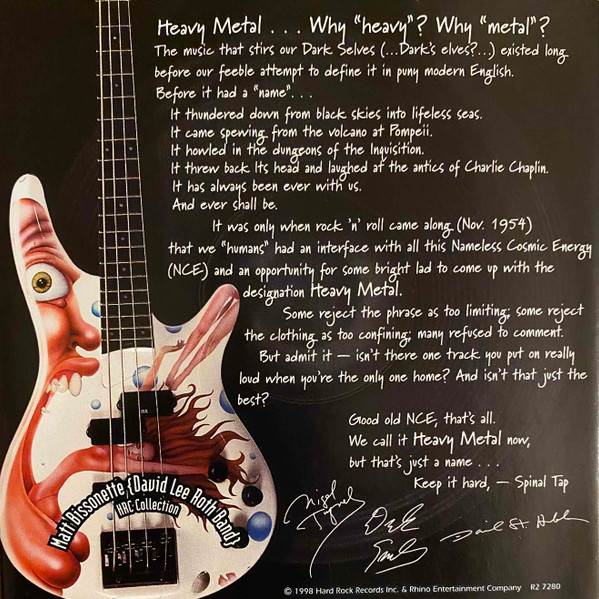 Heavy Metal . . . Why "heavy"? Why "metal"?
The music that stirs our Dark Selves (...Dark's elves?...) existed long
before our feeble attempt to define it in puny modern English.
Before it had a "name". . .
It thundered down from black skies into lifeless seas.
It came spewing from the volcano at Pompeii.
It howled in the dungeons of the Inquisition.
It threw back Its head and laughed at the antics of Charlie Chaplin.
It has always been ever with us.
And ever shall be.
It was only when rock 'n' roll came along (Nov. 1954)
that we "humans" had an interface with all this Nameless Cosmic Energy
(NCE) and an opportunity for some bright lad to come up with the
designation Heavy Metal.
Some reject the phrase as too limiting; some reject
the clothing as too confining; many refused to comment.
But admit it — isn't there one track you put on really
loud when you're the only one home? And isn't that just the
best?
Good old NCE, that's all.
We call it Heavy Metal now,
but that's just a name . . .
Keep it hard, — Spinal Tap
Matt Bissonette {David Lee Roth Band}
HRC Collection
Nigel
David St
© 1998 Hard Rock Records Inc. & Rhino Entertainment Company R2 7280